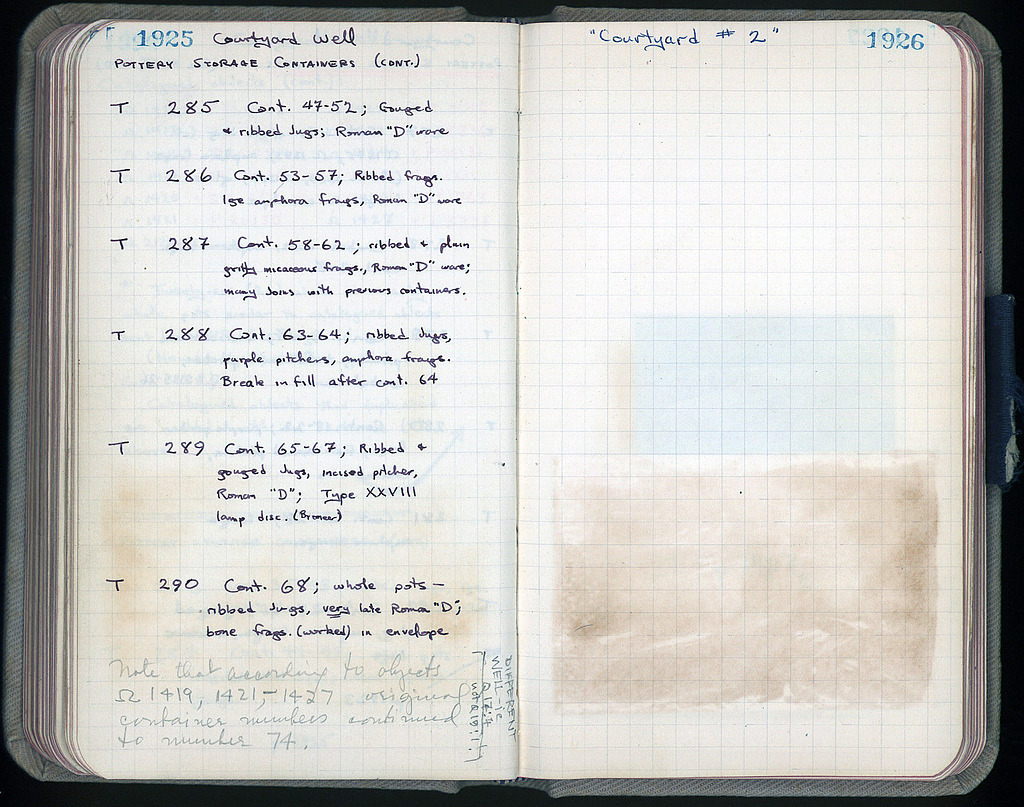 1925 Courtyard Well
POTTERY STORAGE CONTAINERS (CONT.)
T 285 Cont. 47-52; Gouged
& ribbed Jugs; Roman "D" ware
T 286 Cont. 53-57; Ribbed frags.
lge amphora frags, Roman "D" ware
T 287 Cont. 58-62; ribbed & plain
gritty micaceous frags., Roman "D" ware;
many Joins with previous containers.
T 288 Cont. 63-64; ribbed Jugs,
purple pitchers, amphora frags.
Break in fill after cont. 64
T 289 Cont. 65-67; Ribbed &
gouged Jugs, incised pitcher,
Roman "D"; Type XXVIII
lamp disc. (Broneer)
T 290 Cont. 68; whole pots –
ribbed Jugs, very late Roman "D";
bone frags. (worked) in envelope
Note that according to objects
Ω 1419, 1421, –1427 original
container numbers continued
to number 74.
DIFFERENT
WELL – ie
"Courtyard # 2" 1926